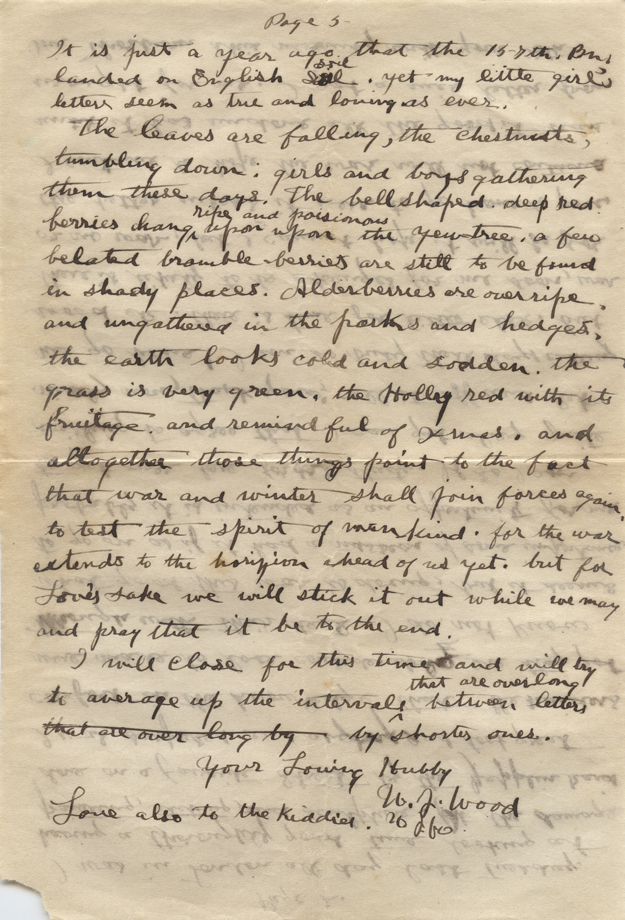 Page 5
It is just a year ago, that the 157th. Bn,
landed on English soil. yet my little girl's
letters seem as true and loving as ever.
The leaves are falling, the chestnuts,
tumbling down; girls and boys gathering
them these days. The bell shaped. deep red.
ripe, and poisonous
berries hang upon upon the yew-tree. a few
belated bramble-berries are still to be found
in shady places. Alderberries are over ripe.
and ungathered in the parks and hedges.
the earth looks cold and sodden. the
grass is very green. the Holley red with its
fruitage. and remindful of Xmas. and
altogether those things point to the fact
that war and winter shall join forces again.
to test the spirit of mankind. for the war
extends to the ahead of us yet. but for
Love's sake we will stick it out while we may
and pray that it be to the end.
I will close for this time and will try
that are overlong
to average up the intervals between letters
that are over long by by shorter ones.
Your Loving Hubby
W. J. Wood
Love also to the Kiddies.